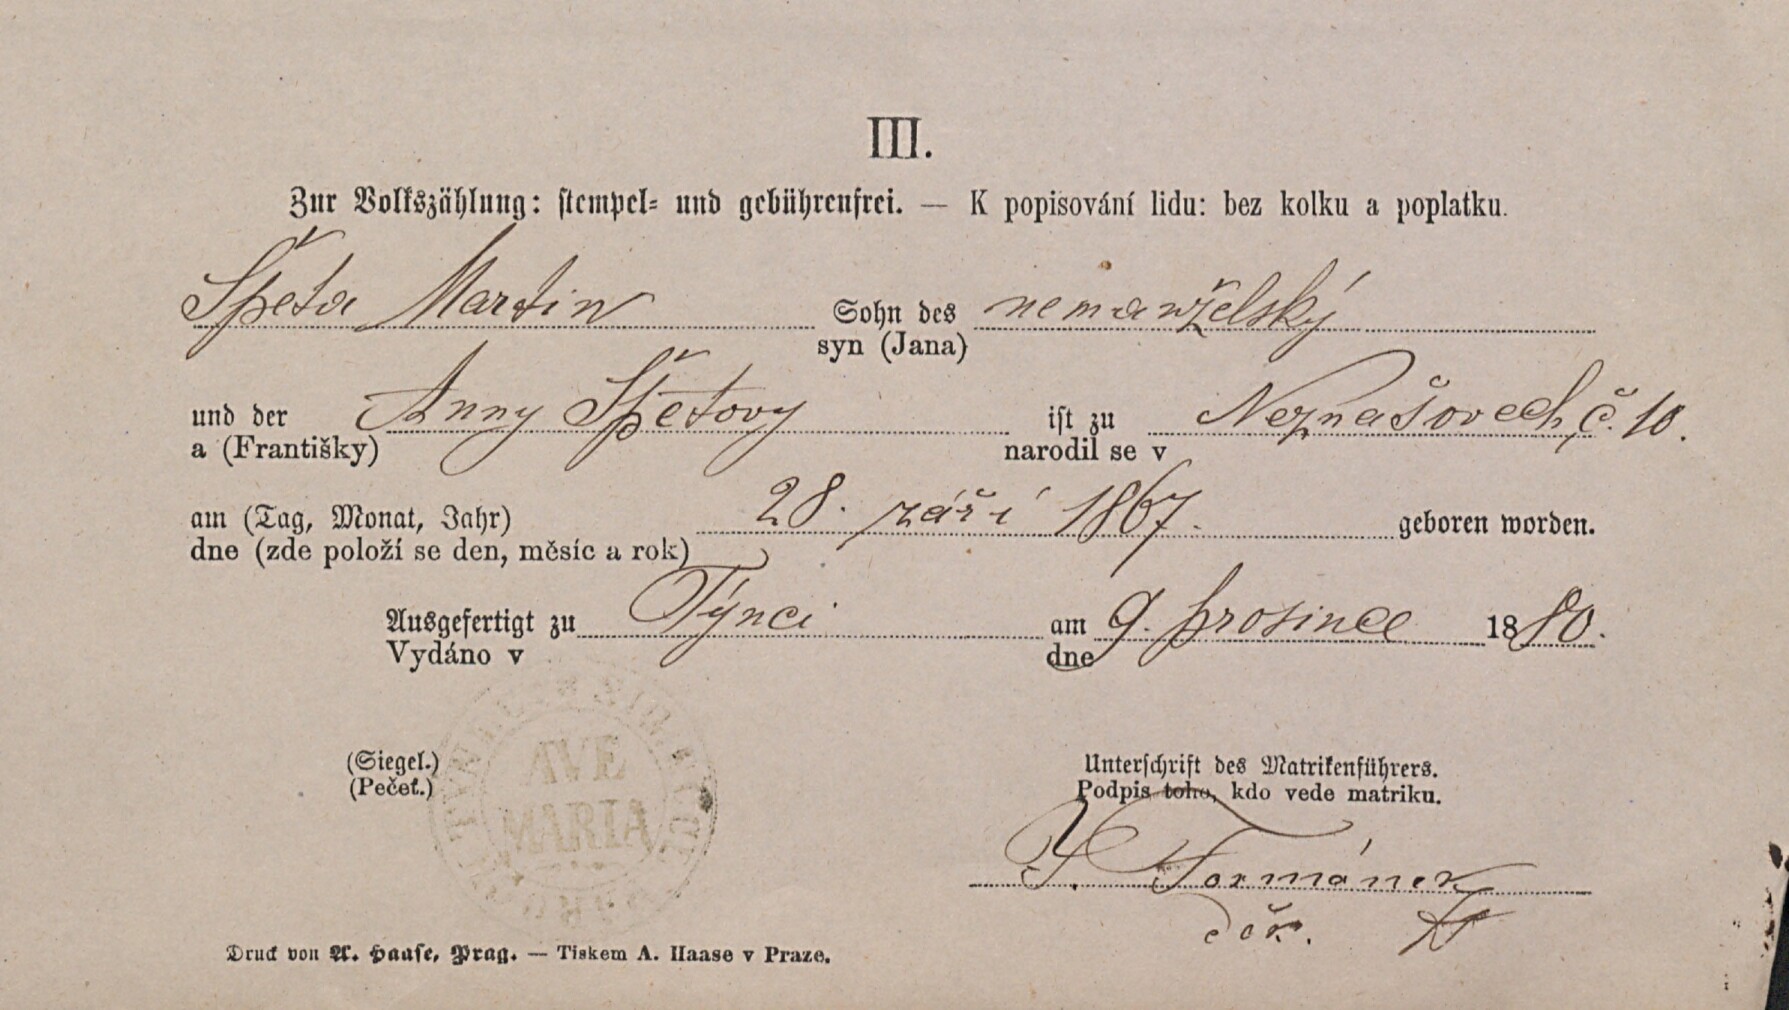 III.
Zur Volkszählung: stempel- und gebührenfrei. — K popisování lidu: bez kolku a poplatku.
Špeta Martin Sohn des nemanželský
syn (Jana)
und der Anny Špětovy ist zu Neznašovech č. 10.
a (Františky) narodil se v
am (Tag, Monat, Jahr) 28. září 1867. geboren worden.
dne (zde položí se den, měsíc a rok)
Ausgefertigt zu Týnci am 9. prosince 1880.
Vydáno v dne
(Siegel.) AVE Unterschrift des Matrikenführers.
(Pečeť.) MARIA Podpis toho, kdo vede matriku.
Formánek
děk.
Druck von A. Haase, Prag. — Tiskem A. Haase v Praze.